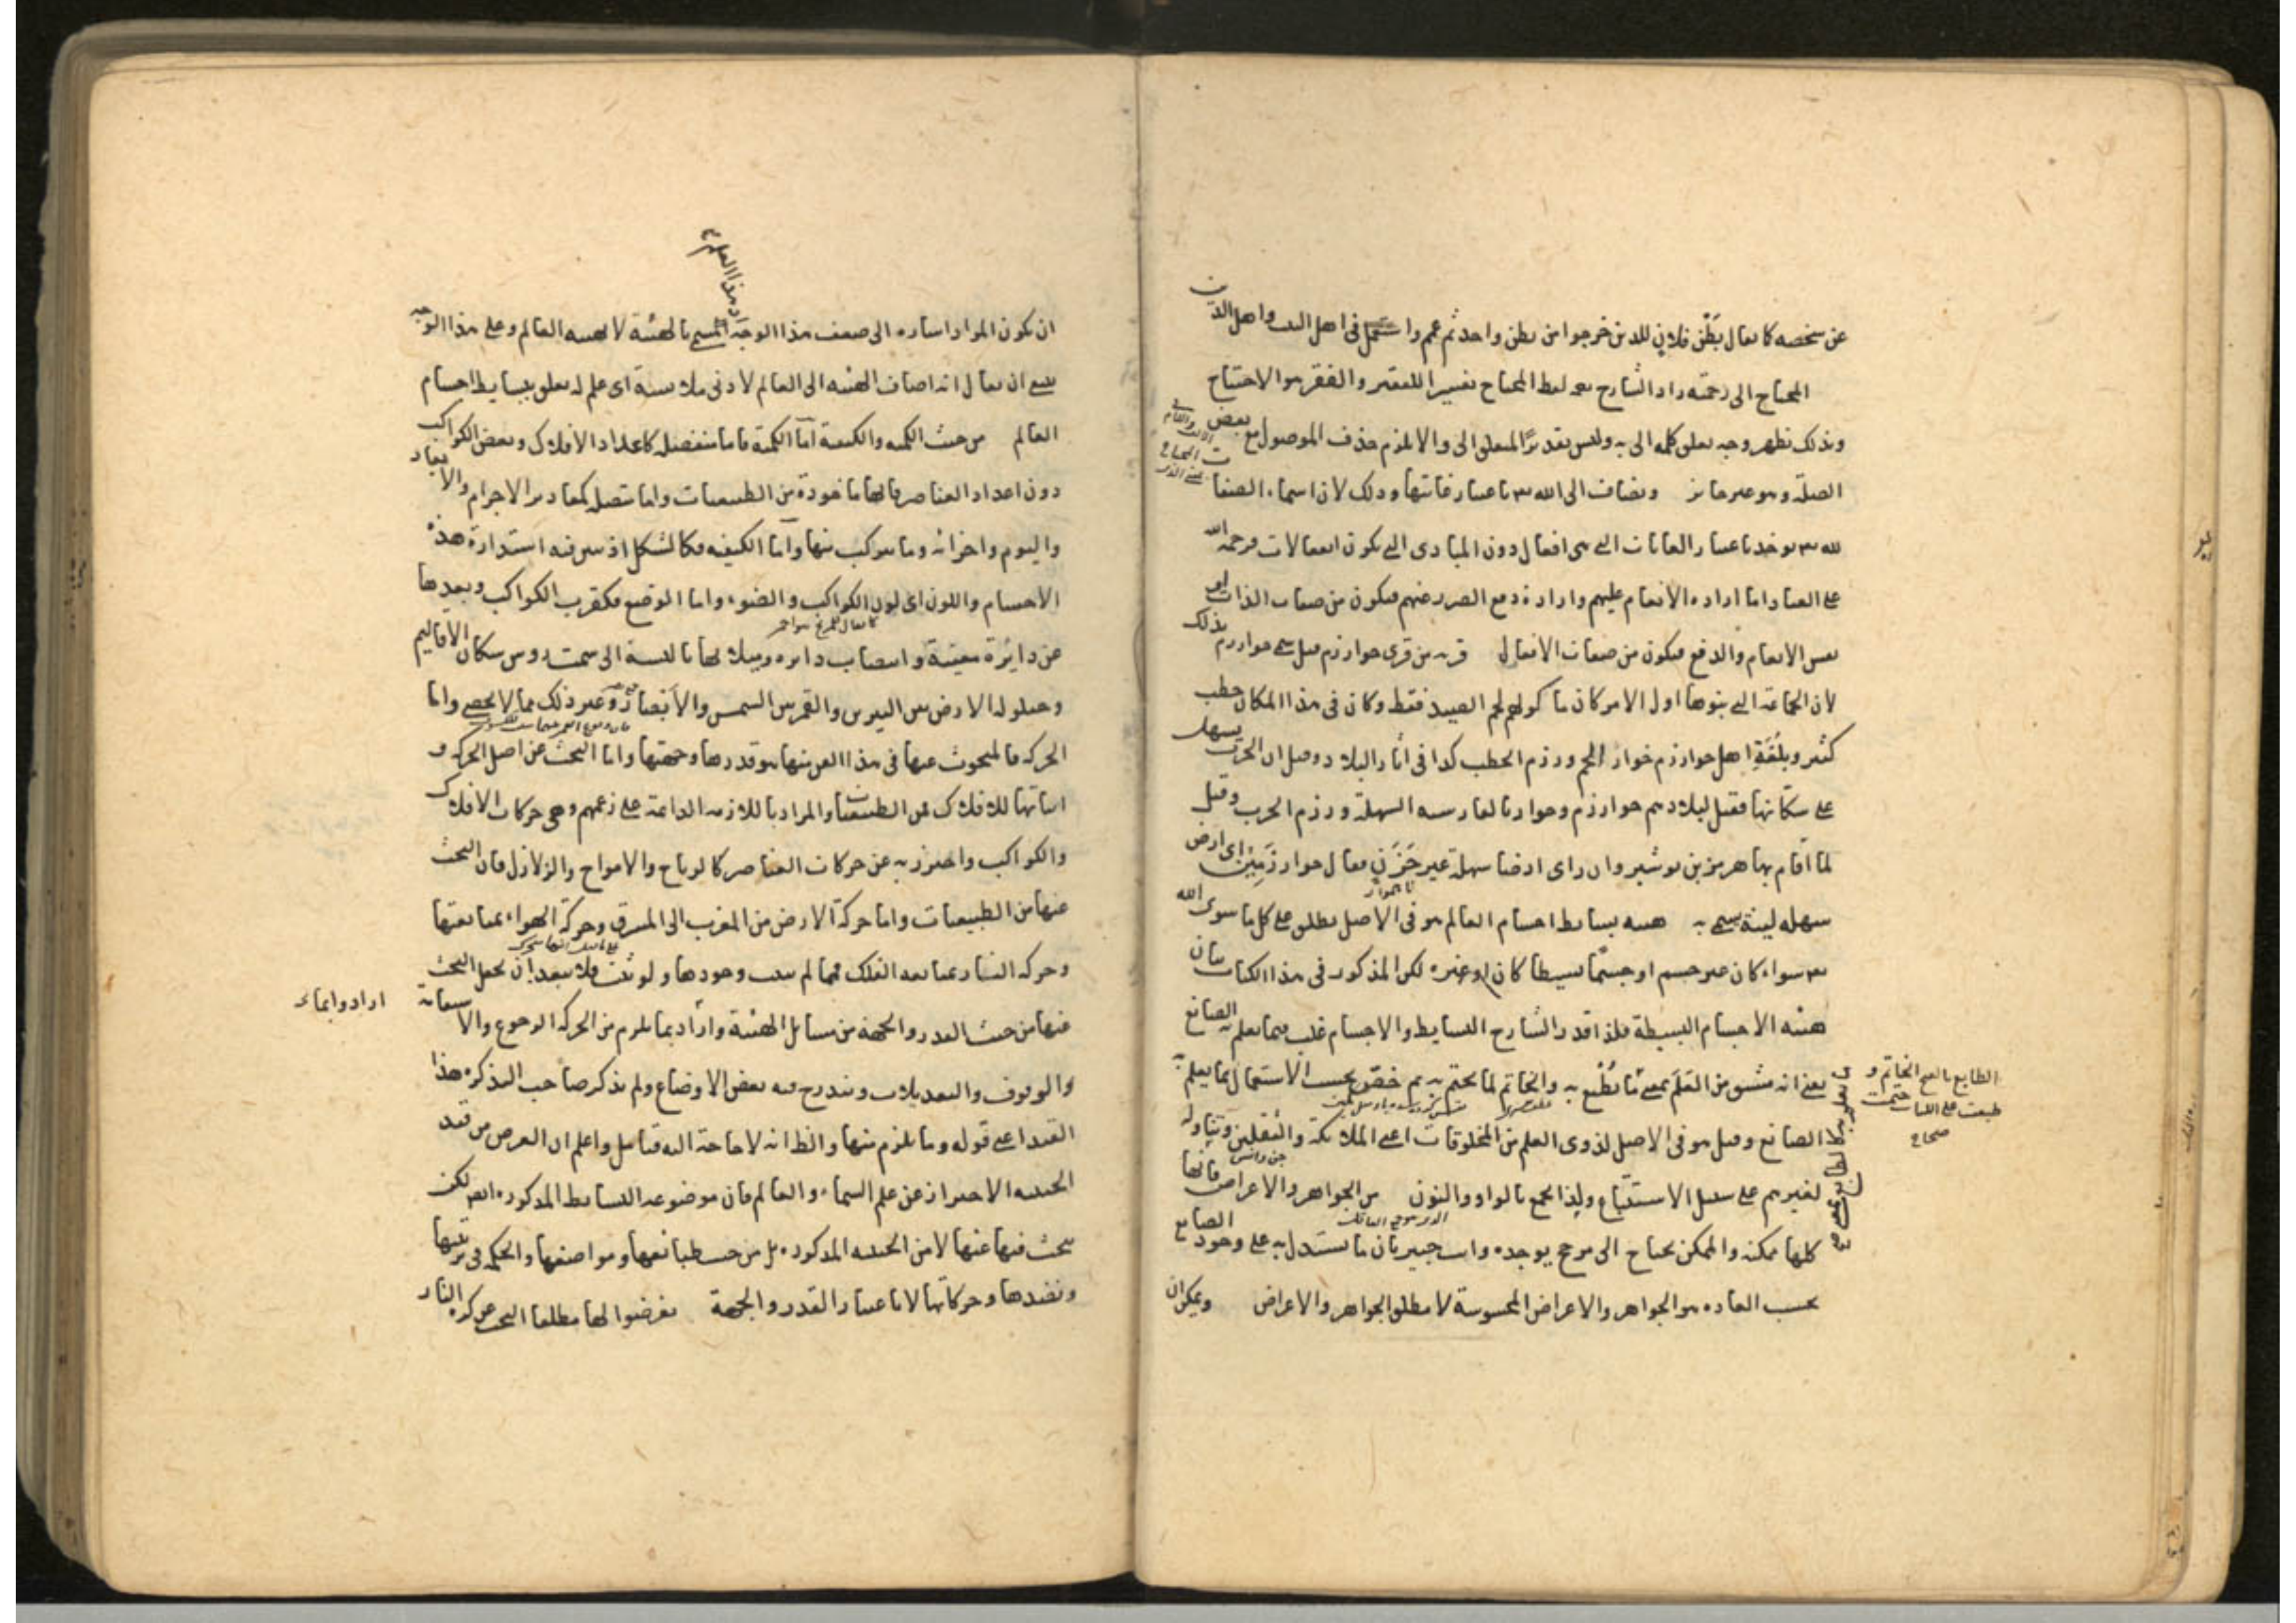 عن شخصه كما يقال بَطْن فلان للذين خرجوا من بطن واحد ثم عمم واستعمل فى اهل البيت واهل الدين
المحتاج الى رحمته زاد الشارح بعد لفظ المحتاج تفسيرا للفقير والفقر هو الاحتياج
وبذلك يظهر وجه تعلق كلمة الى به وليس تقديرًا لمتعلق الى والا لزم حذف الموصول مع بعض
الصلة وهو غير جائز ويضاف الى الله تعالى باعتبار غاياتها وذلك لان اسماء الصفات
لله تعالى يوخذ باعتبار الغايات التى هى افعال دون المبادى التى يكون انفعالات فرحمة الله
على العباد اما ارادة الانعام عليهم وارادة دفع الضرر عنهم فيكون من صفات الذات او
نفس الانعام والدفع فيكون من صفات الافعال قرية من قرى خوارزم قيل سمى خوارزم بذلك
لان الجماعة التى بنوها اول الامر كان ماكولهم لحم الصيد فقط وكان فى هذا المكان حطب
كثير وبلُغَةِ اهل خوارزم خوار اللحم ورزم الحطب كذا فى آثار البلاد وقيل ان الحرب يسهل
على سكانها فقيل لبلادهم خوارزم وخوار بالفارسية السهلة ورزم الحرب وقيل
لما اقام بها هرمز بن نوشيروان راى ارضا سهلة غير حَزَنٍ فقال خوارزَمِيْن اى ارض
سهلة لينة سمى به هيئة بسايط اجسام العالم هو فى الاصل يطلق على كل ما سوى الله
تعالى سواء كان غير جسم او جسمًا بسيطا كان او غيره لكن المذكور فى هذا الكتاب بيان
هيئة الاجسام البسيطة فلذا قدر الشارح البسايط والاجسام غلب فيما يعلم به الصانع
يعنى انه مشتق من العَلَم بمعنى ما يُطْبع به والخاتم لما يختم به ثم خصّ بحسب الاستعمال بما يعلم به
الصانع وقيل هو فى الاصل لذوى العلم من المخلوقات اعنى الملائكة والثقلين ويتناوله
جن وانس
لغيرهم على سبيل الاستتباع ولذا جمع بالواو والنون من الجواهر والاعراض فانها
كلها ممكنة والممكن يحتاج الى مرجح يوجده وانت خبير بان ما يستدل به على وجود الصانع
بحسب العادة هو الجواهر والاعراض المحسوسة لا مطلق الجواهر والاعراض ويمكن ان
الطابع بالفتح الخاتم و
طبعت على الكتاب ختمت
صحاح
هذا العلم
ان يكون المراد اشارة الى ضعف هذا الوجه المسمى بالهيئة لا هيئة العالم وعلى هذا الوجه
ينبغى ان يقال انه اضاف الهيئة الى العالم لادنى ملابسة اى علم له تعلق ببسايط اجسام
العالم من حيث الكمية والكيفية اما الكمية فاما منفصلة كاعداد الافلاك وبعض الكواكب
دون اعداد العناصر فانها ماخوذة من الطبيعيات واما متصلة كمقادير الاجرام والابعاد
واليوم واجزائه وما يتركب منها واما الكيفية فكالشكل اذ تبين فيه استدارة هذه
الاجسام واللون اى لون الكواكب والضوء واما الوضع فكقرب الكواكب وبعدها
عن دائرة معينة وانتصاب دائرة وميلانها بالنسبة الى سمت رؤس سكان الاقاليم
وحيلولة الارض بين النيرين والقمر بين الشمس والابصار وغير ذلك مما لا يحصى واما
الحركة فالمبحوث عنها فى هذا الفن منها هو قدرها وجهتها واما البحث عن اصل الحركة و
اثباتها للافلاك فمن الطبيعيات والمراد باللازمة الدائمة على زعمهم وهى حركات الافلاك
والكواكب واحترز به عن حركات العناصر كالرياح والامواج والزلازل فان البحث
عنها من الطبيعيات واما حركة الارض من المغرب الى المشرق وحركة الهواء بمتابعتها
وحركة النار بمتابعة الفلك فمما لم يثبت وجودها ولو ثبت فلا يبعد ان يجعل البحث
عنها من حيث القدر والجهة من مسايل الهيئة واراد بما يلزم من الحركة الرجوع والاستقامة
والوقوف والتعديلات ويندرج فيه بعض الاوضاع ولم يذكر صاحب التذكرة هذا
القيد اعنى قوله وما يلزم منها والظ انه لا حاجة اليه فتامل واعلم ان الغرض من قيد
الحيثية الاحتراز عن علم السماء والعالم فان موضوعه البسايط المذكورة ايضا لكن
يبحث فيها عنها لا من الحيثية المذكورة بل من حيث طبائعها ومواضعها والحكمة فى ترتيبها
ونضدها وحركاتها لا باعتبار القدر والجهة تعرضوا لها مطلقا البحث عن كرة النار
اراد وايماء